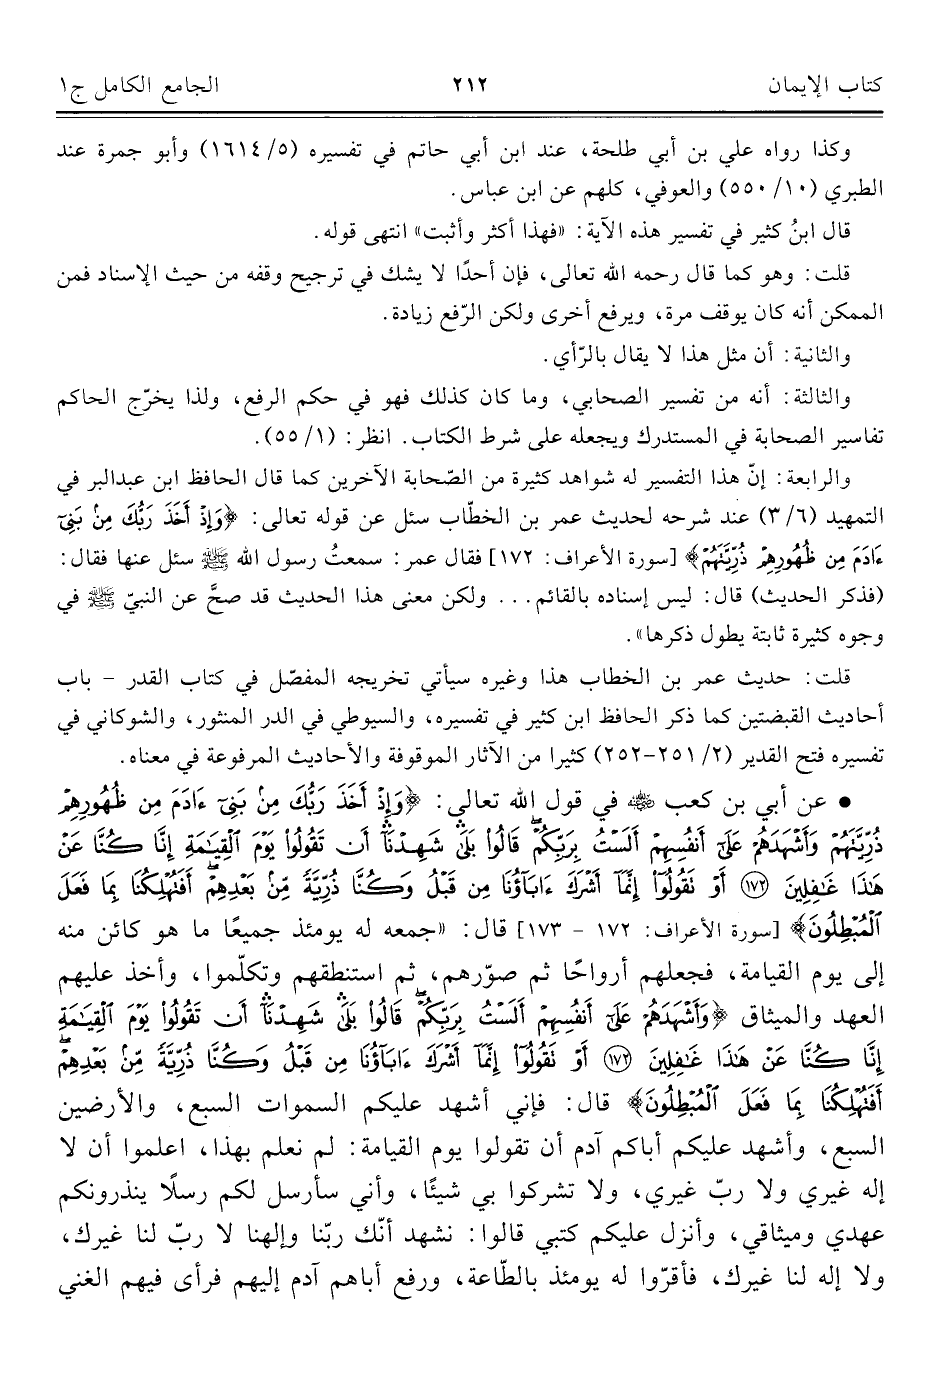 كتاب الإيمان ٢١٢ الجامع الكامل ج١
وكذا رواه علي بن أبي طلحة، عند ابن أبي حاتم في تفسيره (٥/ ١٦١٤) وأبو جمرة عند
الطبري (١٠/ ٥٥٠) والعوفي، كلهم عن ابن عباس.
قال ابنُ كثير في تفسير هذه الآية: «فهذا أكثر وأثبت» انتهى قوله.
قلت: وهو كما قال رحمه الله تعالى، فإن أحدًا لا يشك في ترجيح وقفه من حيث الإسناد فمن
الممكن أنه كان يوقف مرة، ويرفع أخرى ولكن الرّفع زيادة.
والثانية: أن مثل هذا لا يقال بالرّأي.
والثالثة: أنه من تفسير الصحابي، وما كان كذلك فهو في حكم الرفع، ولذا يخرّج الحاكم
تفاسير الصحابة في المستدرك ويجعله على شرط الكتاب. انظر: (١/ ٥٥).
والرابعة: إنّ هذا التفسير له شواهد كثيرة من الصّحابة الآخرين كما قال الحافظ ابن عبدالبر في
التمهيد (٦/ ٣) عند شرحه لحديث عمر بن الخطّاب سئل عن قوله تعالى: ﴿وَإِذْ أَخَذَ رَبُّكَ مِنۢ بَنِىٓ
ءَادَمَ مِن ظُهُورِهِمْ ذُرِّيَّتَهُمْ﴾ [سورة الأعراف: ١٧٢] فقال عمر: سمعتُ رسول الله ﷺ سئل عنها فقال:
(فذكر الحديث) قال: ليس إسناده بالقائم... ولكن معنى هذا الحديث قد صحَّ عن النبيّ ﷺ في
وجوه كثيرة ثابتة يطول ذكرها».
قلت: حديث عمر بن الخطاب هذا وغيره سيأتي تخريجه المفصّل في كتاب القدر – باب
أحاديث القبضتين كما ذكر الحافظ ابن كثير في تفسيره، والسيوطي في الدر المنثور، والشوكاني في
تفسيره فتح القدير (٢/ ٢٥١-٢٥٢) كثيرا من الآثار الموقوفة والأحاديث المرفوعة في معناه.
• عن أبي بن كعب ﵁ في قول الله تعالى: ﴿وَإِذْ أَخَذَ رَبُّكَ مِنۢ بَنِىٓ ءَادَمَ مِن ظُهُورِهِمْ
ذُرِّيَّتَهُمْ وَأَشْهَدَهُمْ عَلَىٰٓ أَنفُسِهِمْ أَلَسْتُ بِرَبِّكُمْ ۖ قَالُوا۟ بَلَىٰ ۛ شَهِدْنَآ ۛ أَن تَقُولُوا۟ يَوْمَ ٱلْقِيَٰمَةِ إِنَّا كُنَّا عَنْ
هَٰذَا غَٰفِلِينَ ١٧٢ أَوْ تَقُولُوٓا۟ إِنَّمَآ أَشْرَكَ ءَابَآؤُنَا مِن قَبْلُ وَكُنَّا ذُرِّيَّةً مِّنۢ بَعْدِهِمْ ۖ أَفَتُهْلِكُنَا بِمَا فَعَلَ
ٱلْمُبْطِلُونَ﴾ [سورة الأعراف: ١٧٢ – ١٧٣] قال: «جمعه له يومئذ جميعًا ما هو كائن منه
إلى يوم القيامة، فجعلهم أرواحًا ثم صوّرهم، ثم استنطقهم وتكلّموا، وأخذ عليهم
العهد والميثاق ﴿وَأَشْهَدَهُمْ عَلَىٰٓ أَنفُسِهِمْ أَلَسْتُ بِرَبِّكُمْ ۖ قَالُوا۟ بَلَىٰ ۛ شَهِدْنَآ ۛ أَن تَقُولُوا۟ يَوْمَ ٱلْقِيَٰمَةِ
إِنَّا كُنَّا عَنْ هَٰذَا غَٰفِلِينَ ١٧٢ أَوْ تَقُولُوٓا۟ إِنَّمَآ أَشْرَكَ ءَابَآؤُنَا مِن قَبْلُ وَكُنَّا ذُرِّيَّةً مِّنۢ بَعْدِهِمْ ۖ
أَفَتُهْلِكُنَا بِمَا فَعَلَ ٱلْمُبْطِلُونَ﴾ قال: فإني أشهد عليكم السموات السبع، والأرضين
السبع، وأشهد عليكم أباكم آدم أن تقولوا يوم القيامة: لم نعلم بهذا، اعلموا أن لا
إله غيري ولا ربّ غيري، ولا تشركوا بي شيئًا، وأني سأرسل لكم رسلًا ينذرونكم
عهدي وميثاقي، وأنزل عليكم كتبي قالوا: نشهد أنّك ربّنا وإلهنا لا ربّ لنا غيرك،
ولا إله لنا غيرك، فأقرّوا له يومئذ بالطّاعة، ورفع أباهم آدم إليهم فرأى فيهم الغني